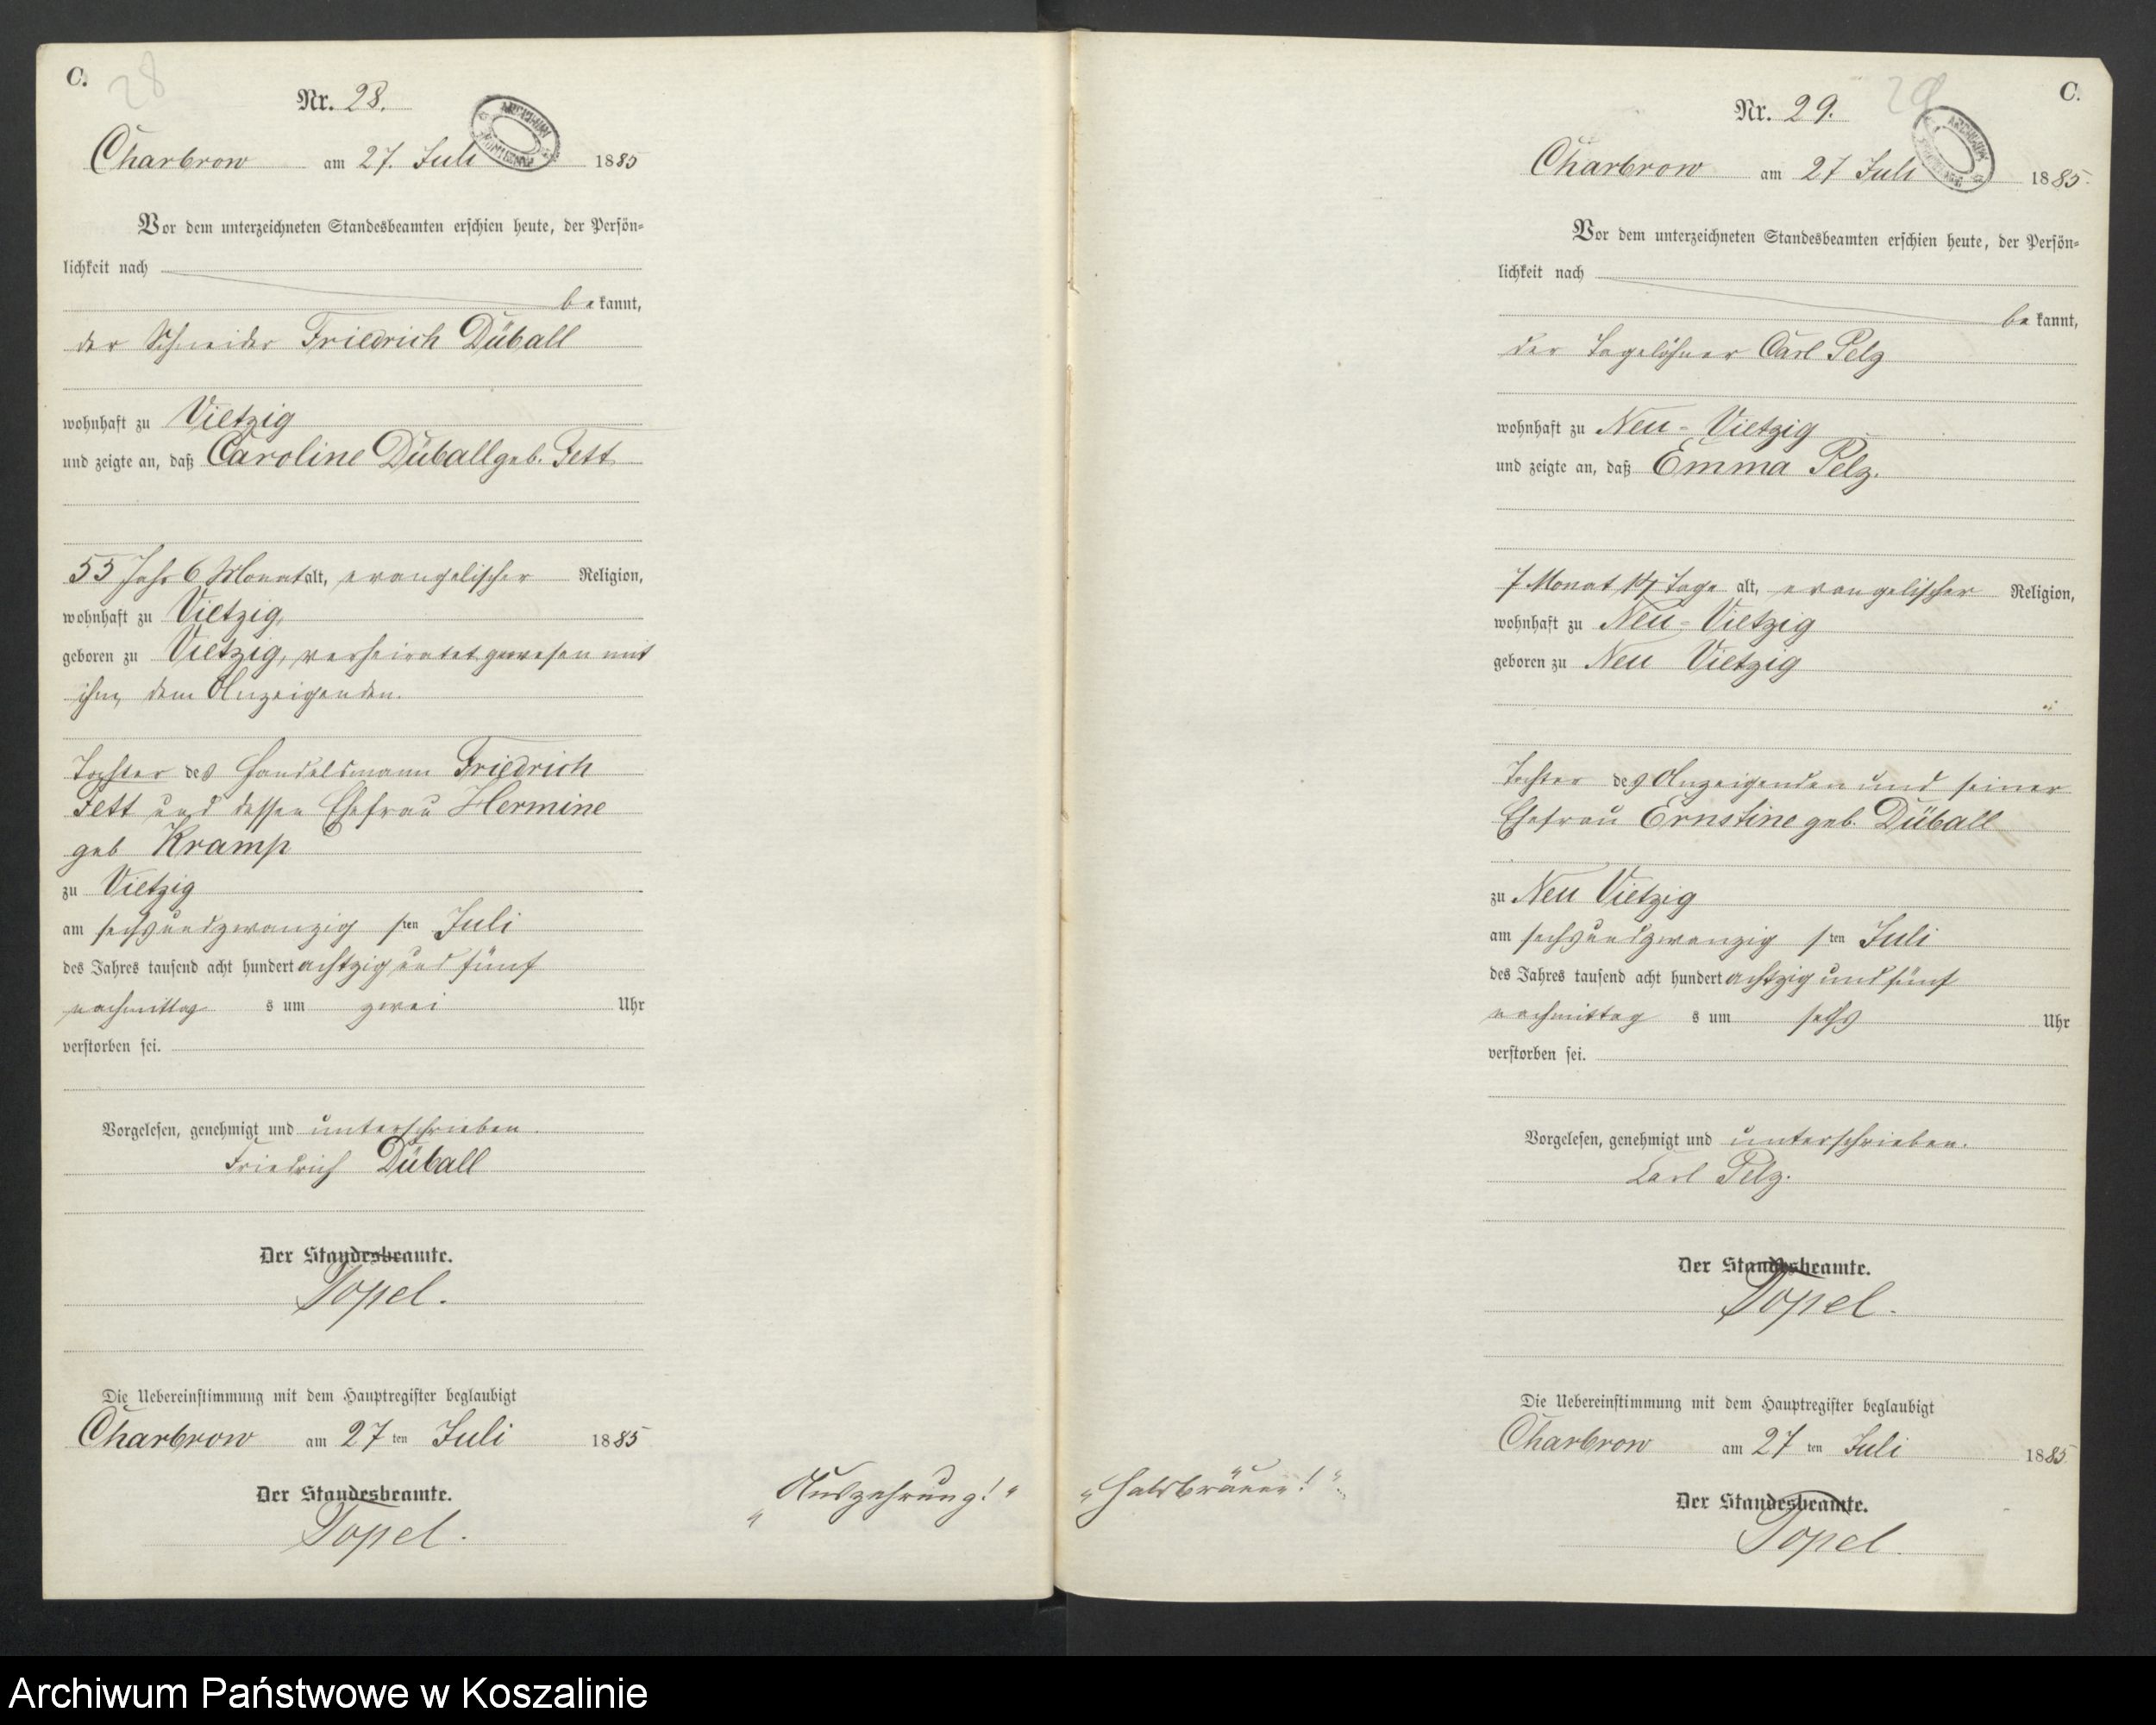 C.
28
Nr. 28.
Charbrow am 27. Juli 1885
Vor dem unterzeichneten Standesbeamten erschien heute, der Persön-
lichkeit nach
bekannt,
der Schneider Friedrich Düball
wohnhaft zu Vietzig
und zeigte an, daß Caroline Düball geb. Fett
55 Jahr 6 Monat alt, evangelischer Religion,
wohnhaft zu Vietzig,
geboren zu Vietzig, verheiratet gewesen mit
ihm, dem Anzeigenden.
Tochter des Handelsmann Friedrich
Fett und dessen Ehefrau Hermine
geb Kramp
zu Vietzig
am sechsundzwanzigsten Juli
des Jahres tausend acht hundert achtzig und fünf
nachmittags um zwei Uhr
verstorben sei.
Vorgelesen, genehmigt und unterschrieben.
Friedrich Düball
Der Standesbeamte.
Topel.
Die Uebereinstimmung mit dem Hauptregister beglaubigt
Charbrow am 27ten Juli 1885
Der Standesbeamte.
Topel.
„Auszehrung!"
C.
29
Nr. 29.
Charbrow am 27 Juli 1885.
Vor dem unterzeichneten Standesbeamten erschien heute, der Persön-
lichkeit nach
bekannt,
der Tagelöhner Carl Pelz
wohnhaft zu Neu-Vietzig
und zeigte an, daß Emma Pelz.
7 Monat 14 Tage alt, evangelischer Religion,
wohnhaft zu Neu-Vietzig
geboren zu Neu Vietzig
Tochter des Anzeigenden und seiner
Ehefrau Ernstine geb. Düball
zu Neu Vietzig
am sechsundzwanzigsten Juli
des Jahres tausend acht hundert achtzig und fünf
nachmittags um sechs Uhr
verstorben sei.
Vorgelesen, genehmigt und unterschrieben.
Carl Pelz.
Der Standesbeamte.
Topel.
Die Uebereinstimmung mit dem Hauptregister beglaubigt
Charbrow am 27ten Juli 1885.
Der Standesbeamte.
Topel.
„Halsbräune!"
Archiwum Państwowe w Koszalinie